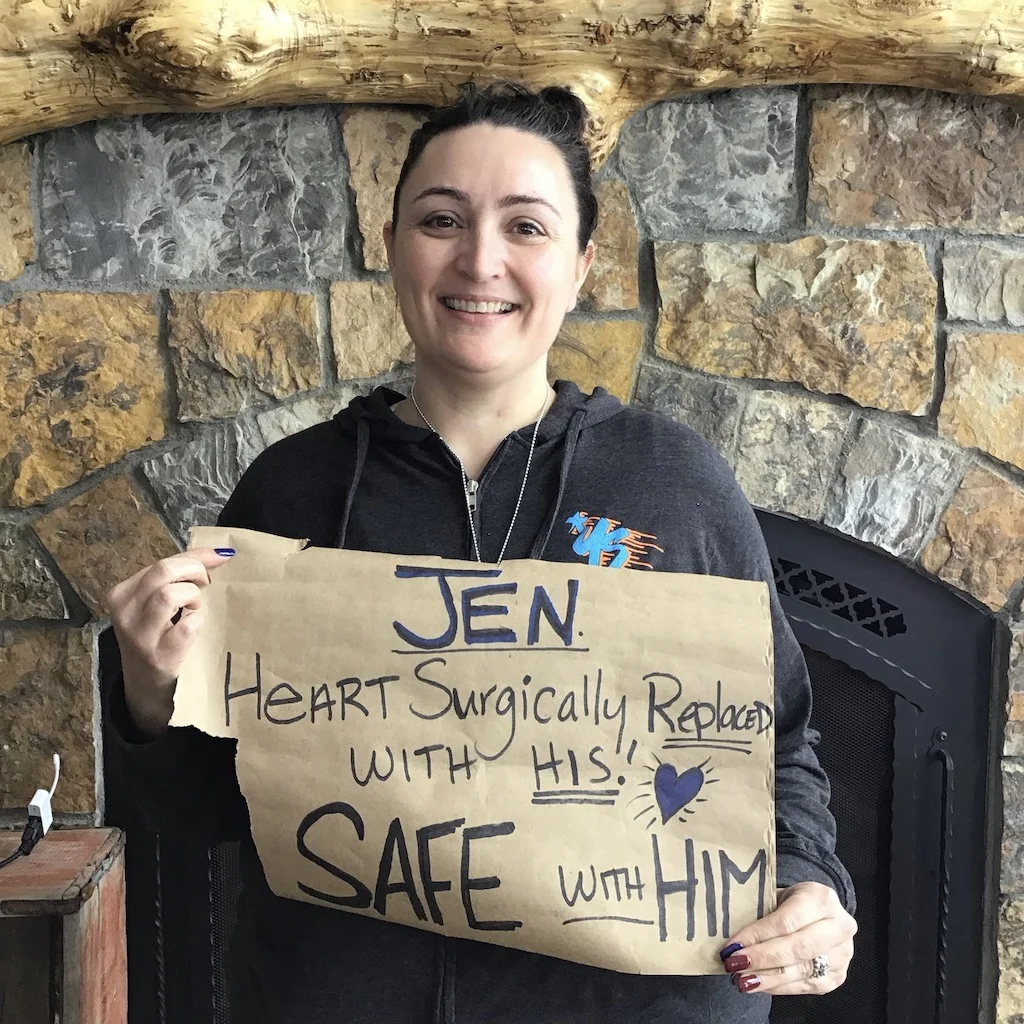 JEN.
HEART Surgically REPLACED
WITH HIS!
SAFE WITH HIM